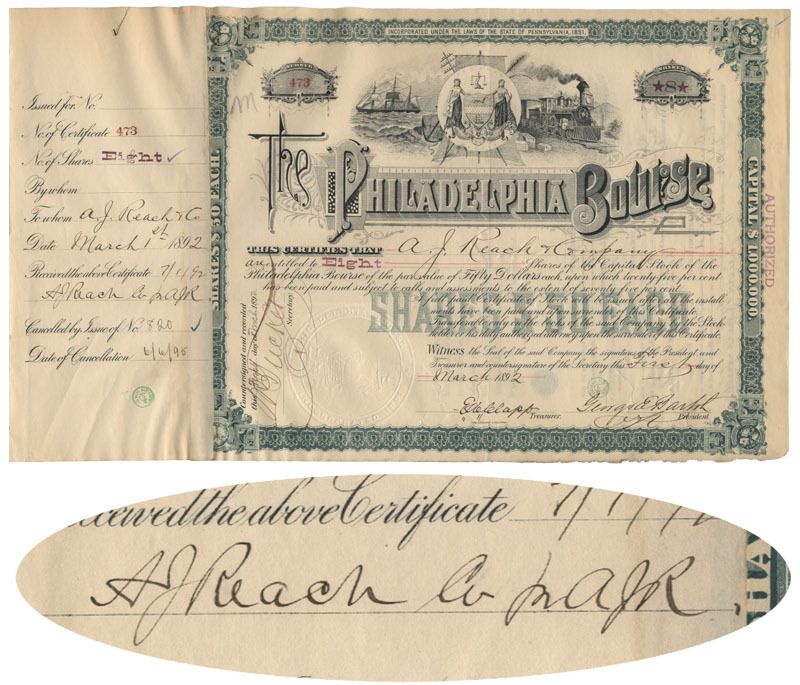 Issued for No.
No. of Certificate 473
No. of Shares Eight
By whom
To whom A. J. Reach & Co
Date March 1st 1892
Received the above Certificate 7/1/92
AJ Reach Co pr AJR
Cancelled by Issue of No. 820
Date of Cancellation 6/6/95
SHARES $50 EACH
INCORPORATED UNDER THE LAWS OF THE STATE OF PENNSYLVANIA, 1891.
NUMBER
473
SHARES
★8★
The Philadelphia Bourse
THIS CERTIFIES THAT A. J. Reach & Company
are entitled to Eight Shares of the Capital Stock of the
Philadelphia Bourse of the par value of Fifty Dollars each, upon which twenty five per cent
has been paid and subject to calls and assessments to the extent of seventy five per cent.
A full paid Certificate of Stock will be issued after all the installments
have been paid and upon surrender of this Certificate.
Transferable only on the books of the said Company by the Stockholder
or his duly authorized attorney upon the surrender of this Certificate.
Witness the Seal of the said Company the signatures of the President and
Treasurer and countersignature of the Secretary this First day of
March 1892
Treasurer.
President
Countersigned and recorded
this day of 189
Secretary
CAPITAL $1,000,000
AUTHORIZED
eceived the above Certificate 7/1/92
AJ Reach Co pr AJR